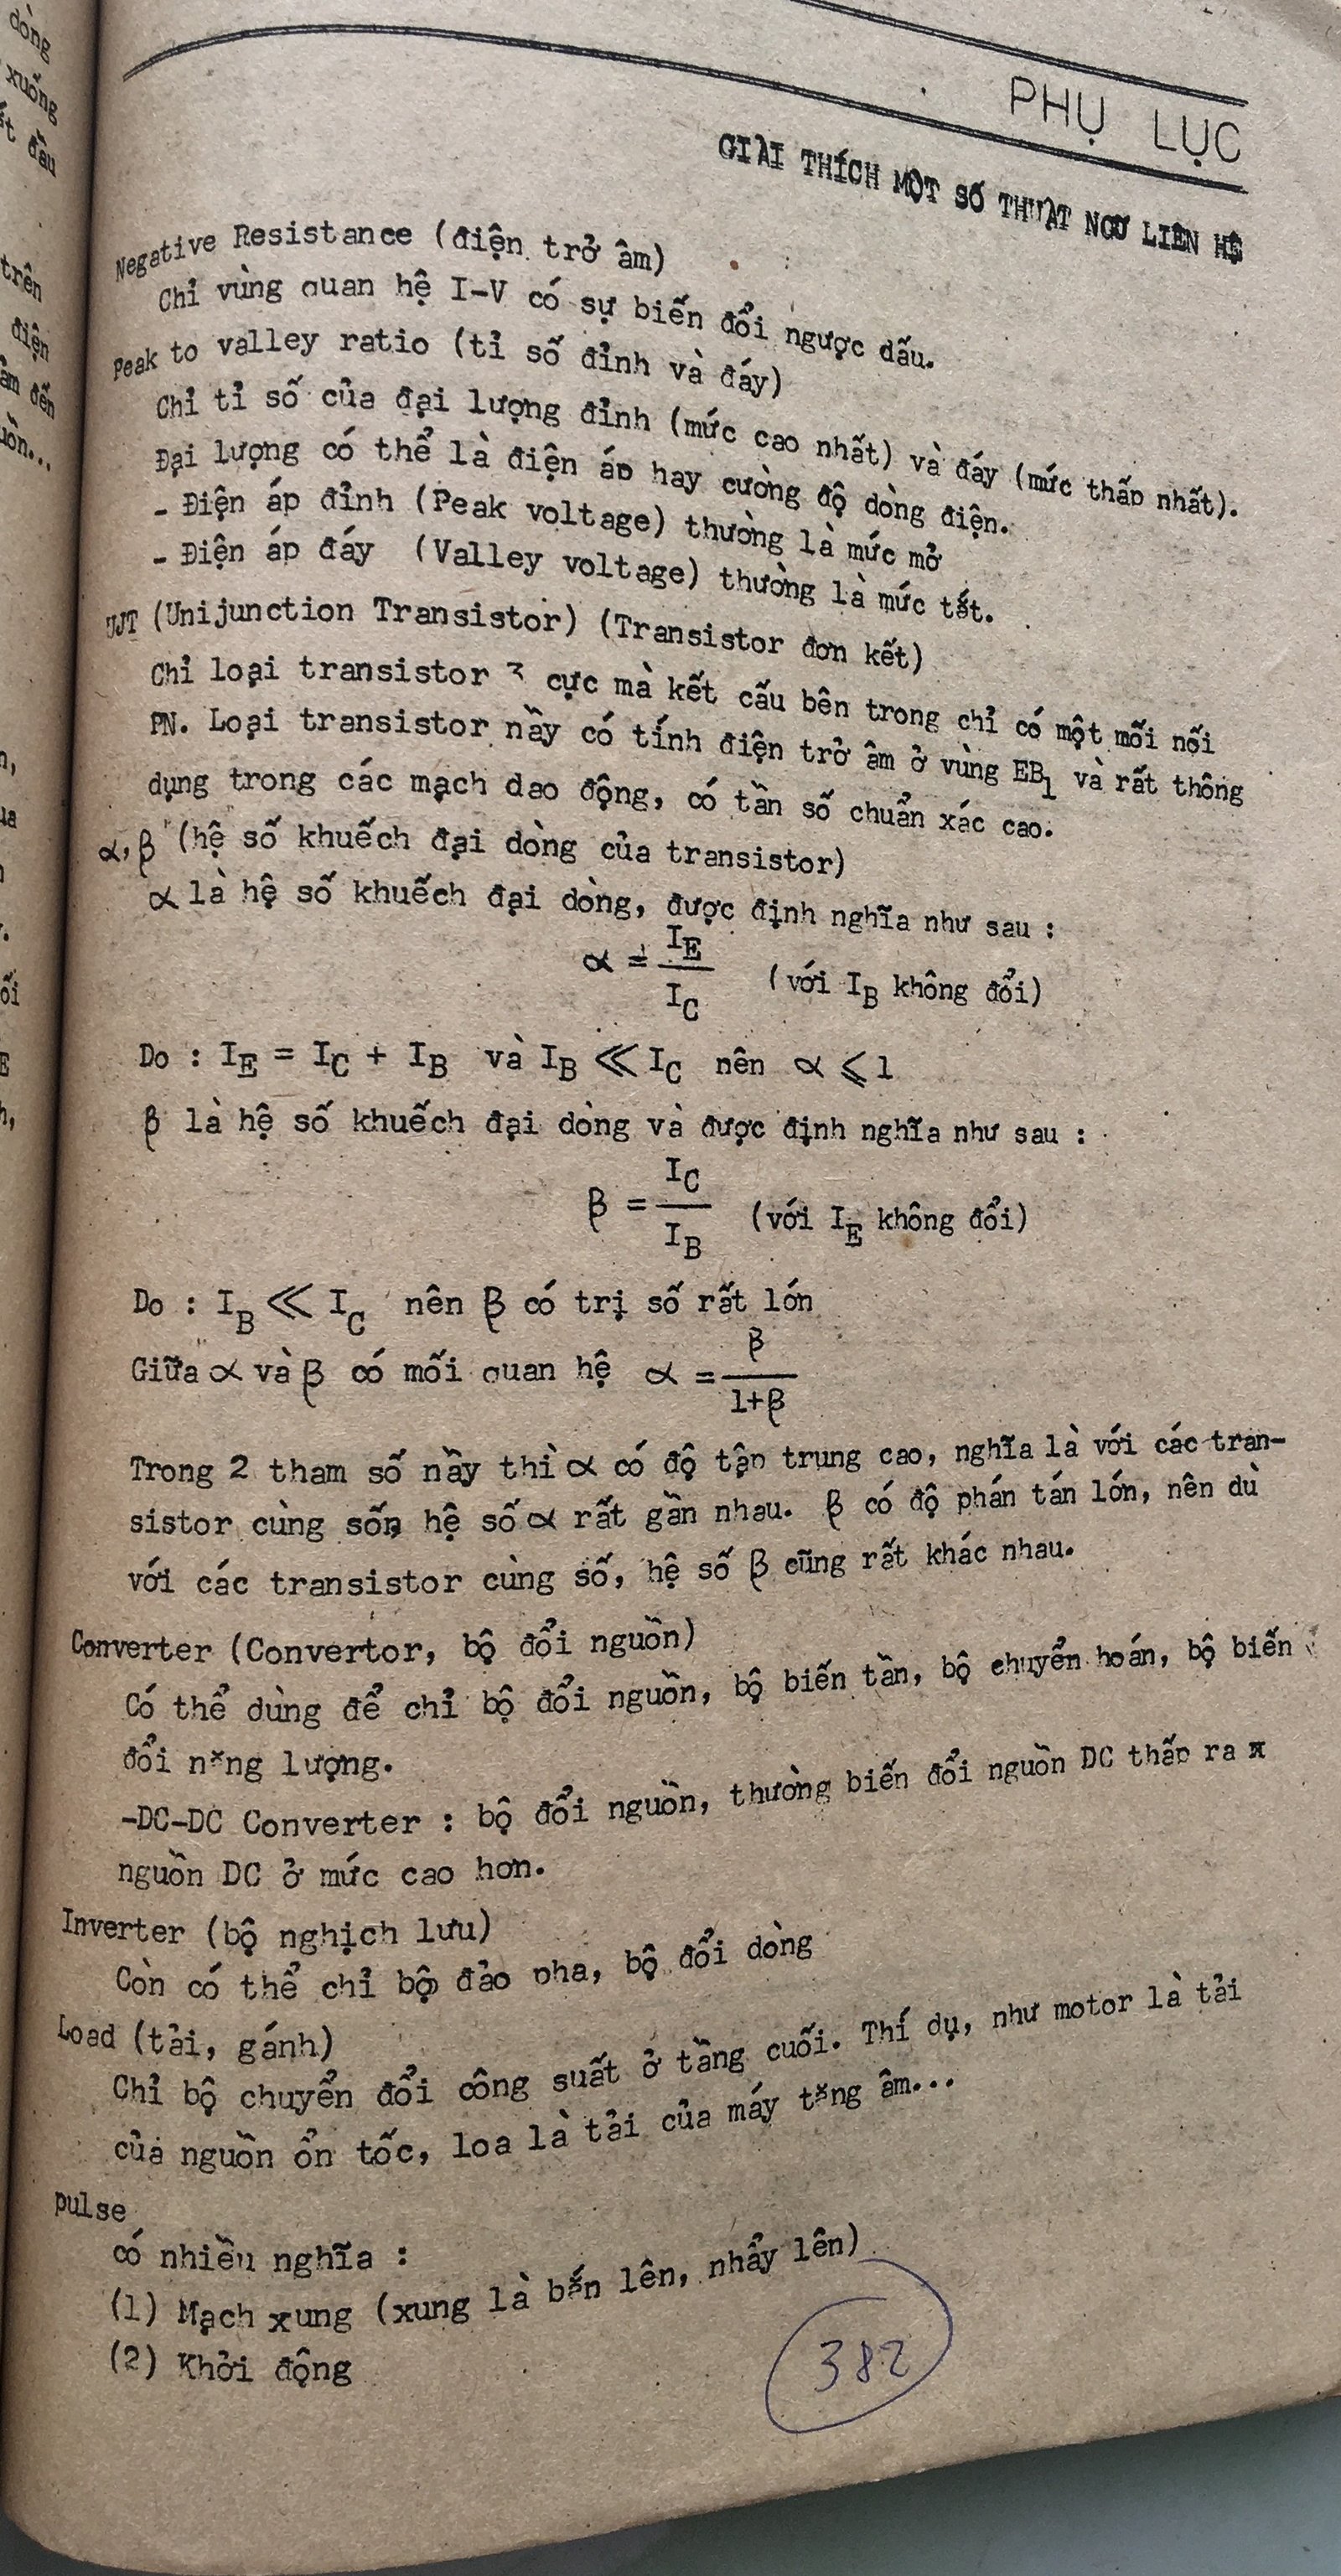 dòng
xuống
ất đầu
trên
điện
âm đến
uồn...
PHỤ LỤC
GIẢI THÍCH MỘT SỐ THUẬT NGỮ LIÊN HỆ
Negative Resistance (điện trở âm)
Chỉ vùng quan hệ I-V có sự biến đổi ngược dấu.
Peak to valley ratio (tỉ số đỉnh và đáy)
Chỉ tỉ số của đại lượng đỉnh (mức cao nhất) và đáy (mức thấp nhất).
Đại lượng có thể là điện áp hay cường độ dòng điện.
- Điện áp đỉnh (Peak voltage) thường là mức mở
- Điện áp đáy (Valley voltage) thường là mức tắt.
UJT (Unijunction Transistor) (Transistor đơn kết)
Chỉ loại transistor 3 cực mà kết cấu bên trong chỉ có một mối nối
PN. Loại transistor nầy có tính điện trở âm ở vùng EB1 và rất thông
dụng trong các mạch dao động, có tần số chuẩn xác cao.
α, β (hệ số khuếch đại dòng của transistor)
α là hệ số khuếch đại dòng, được định nghĩa như sau :
α = I_E / I_C (với I_B không đổi)
Do : I_E = I_C + I_B và I_B ≪ I_C nên α ⩽ 1
β là hệ số khuếch đại dòng và được định nghĩa như sau :
β = I_C / I_B (với I_E không đổi)
Do : I_B ≪ I_C nên β có trị số rất lớn
Giữa α và β có mối quan hệ α = β / 1+β
Trong 2 tham số nầy thì α có độ tập trung cao, nghĩa là với các tran-
sistor cùng số, hệ số α rất gần nhau. β có độ phán tán lớn, nên dù
với các transistor cùng số, hệ số β cũng rất khác nhau.
Converter (Convertor, bộ đổi nguồn)
Có thể dùng để chỉ bộ đổi nguồn, bộ biến tần, bộ chuyển hoán, bộ biến
đổi năng lượng.
-DC-DC Converter : bộ đổi nguồn, thường biến đổi nguồn DC thấp ra
nguồn DC ở mức cao hơn.
Inverter (bộ nghịch lưu)
Còn có thể chỉ bộ đảo pha, bộ đổi dòng
Load (tải, gánh)
Chỉ bộ chuyển đổi công suất ở tầng cuối. Thí dụ, như motor là tải
của nguồn ổn tốc, loa là tải của máy tăng âm...
pulse
có nhiều nghĩa :
(1) Mạch xung (xung là bắn lên, nhẩy lên)
(2) Khởi động
382